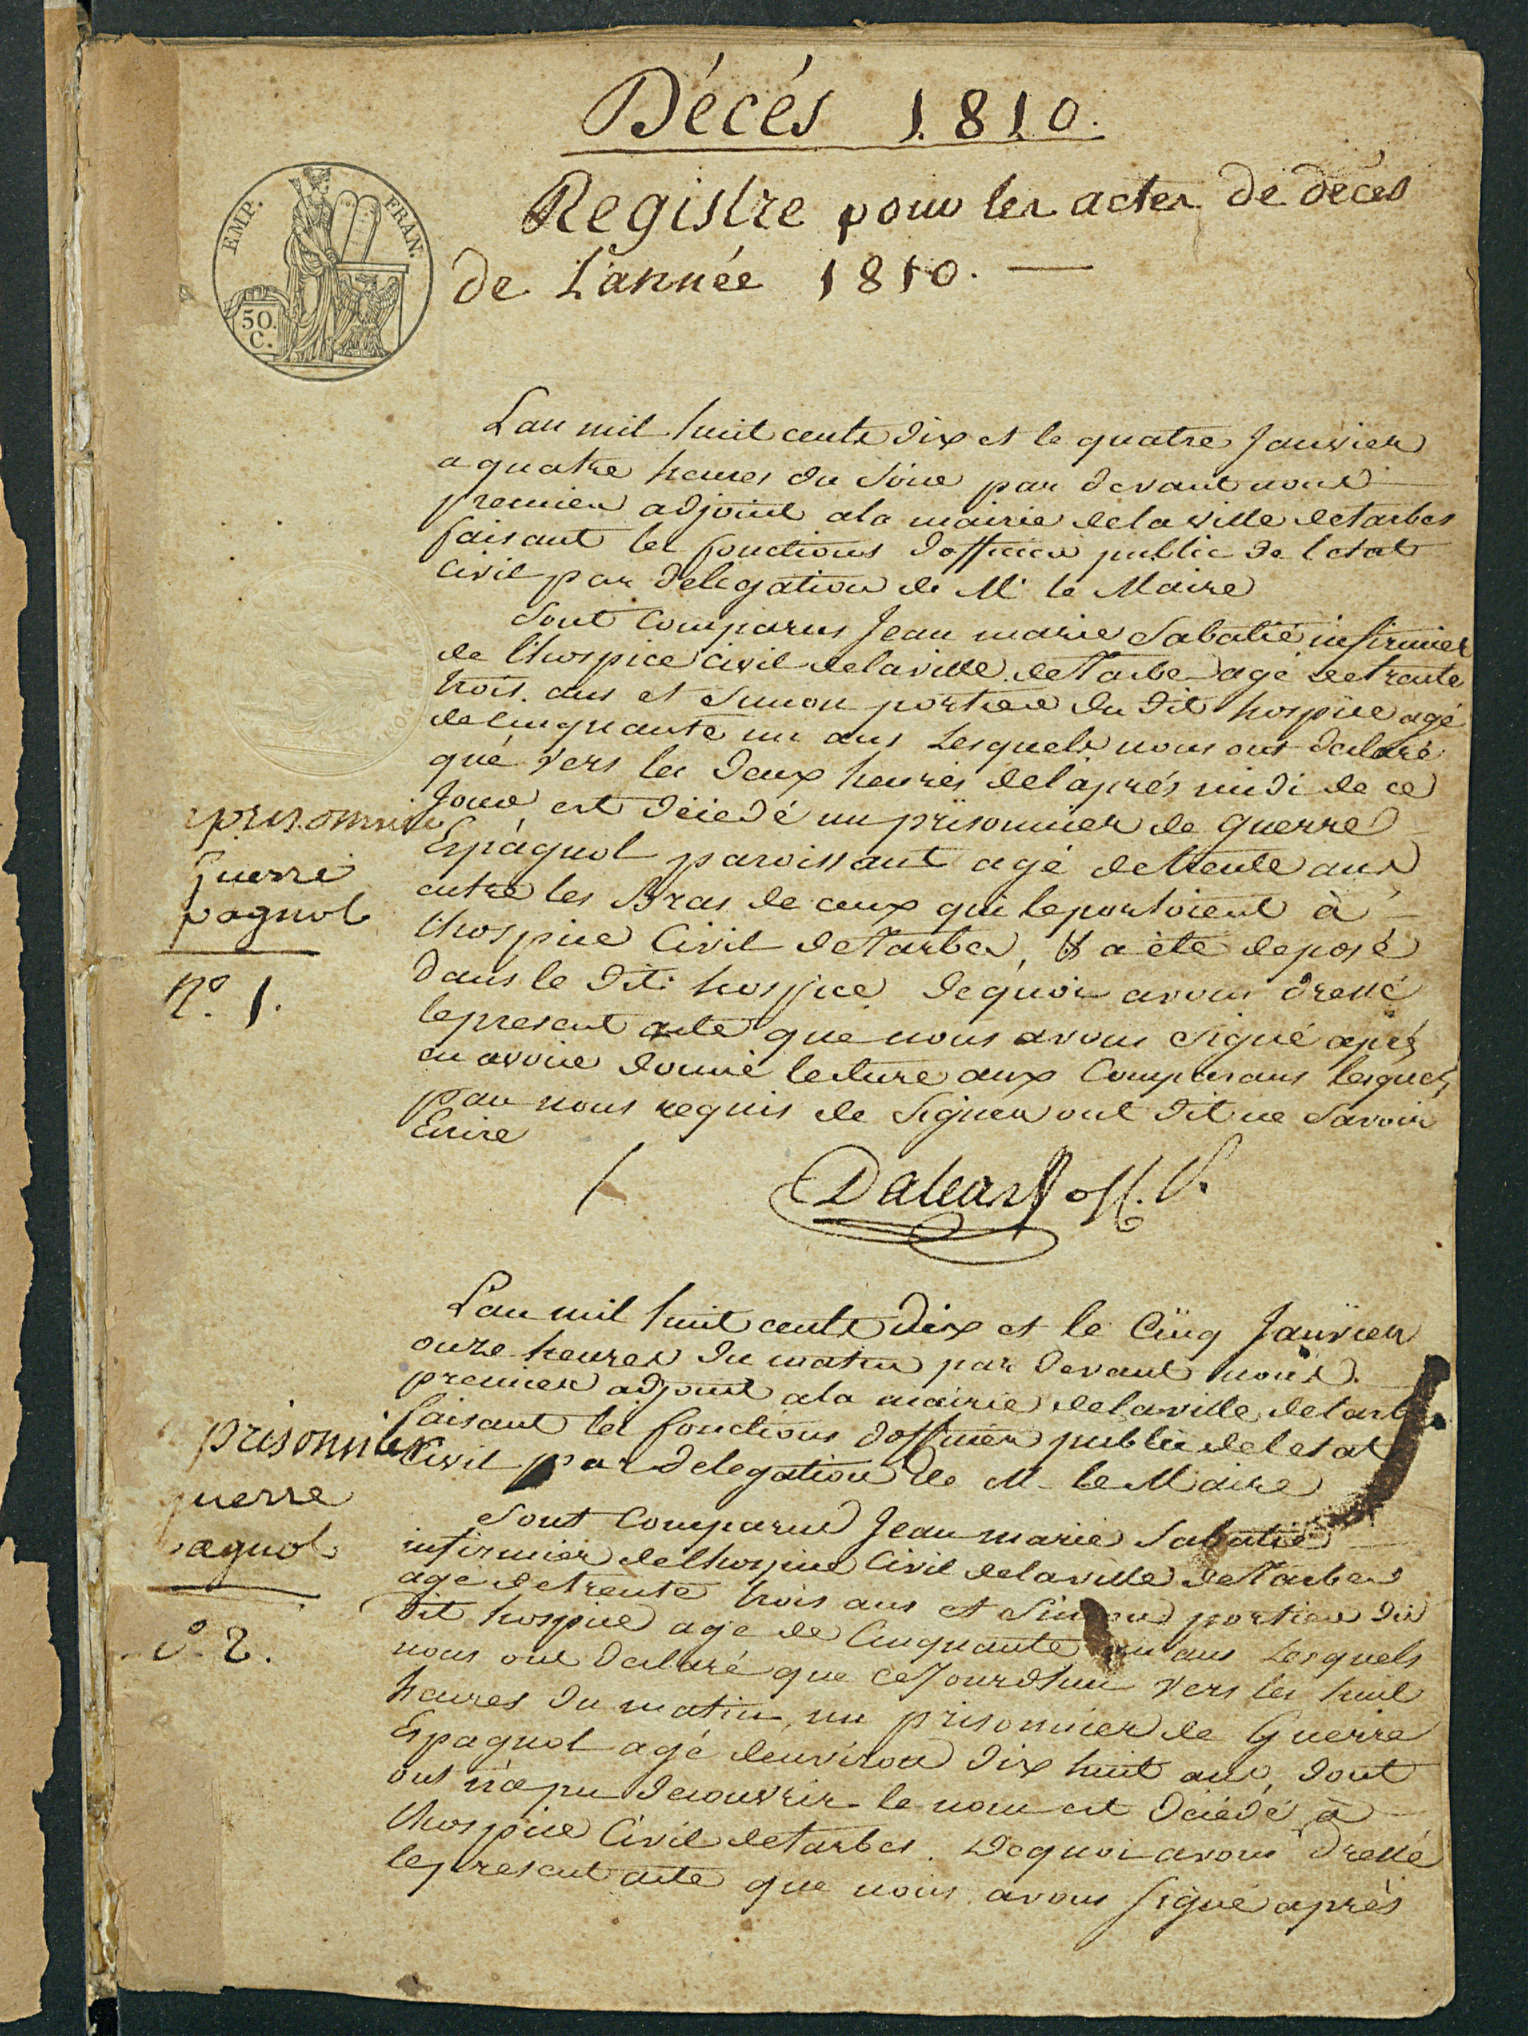 Décés 1810.
Registre pour les actes de décès
de L'année 1810. —
EMP. FRAN.
50.
C.
L'an mil huit cents dix et le quatre Janvier
a quatre heures du soir par devant nous
premier adjoint a la mairie de la ville de tarbes
faisant les fonctions d'officier public de l'etat
Civil par delegation de Mr. le Maire
Sont Comparus Jean marie Sabatié infirmier
de l'hospice Civil de la ville de Tarbe agé de trente
trois ans et Simon portier du dit hospice agé
de Cinquante un ans Lesquels nous ont déclaré
qué vers les deux heures de l'aprés midi de ce
Jour est décédé un prisonnier de guerre
Espágnol paroissant agé de trente ans
entre les Bras de ceux qui le portoient à
l'hospice Civil de Tarbes, Il a été deposé
dans le dit hospice de quoi avons dressé
le present acte que nous avons signé aprés
en avoir donné lecture aux Comparans lesquels
par nous requis de Signer ont dit ne Savoir
Ecrire
prisonnier
Guerre
pagnol
No. 1.
off. P.
L'an mil huit cents dix et le Cinq Janvier
onze heures du matin par devant nous
premier adjoint a la mairie de la ville de tarbes
faisant les fonctions d'officier public de l'etat
Civil par delegation de M. le Maire
Sont Comparus Jean marie Sabatié
infirmier de l'hospice Civil de la ville de Tarbes
agé de trente trois ans et Simon portier du
dit hospice agé de Cinquante un ans Lesquels
nous ont declaré que ce Jourdhui vers les huit
heures du matin, un prisonnier de Guerre
Espagnol agé d'environ dix huit ans, dont
ont n'a pu decouvrir le nom est décédé à
l'hospice Civil de Tarbes. De quoi avons dressé
le present acte que nous avons signé aprés
prisonnier
uerre
agnol
o. 2.